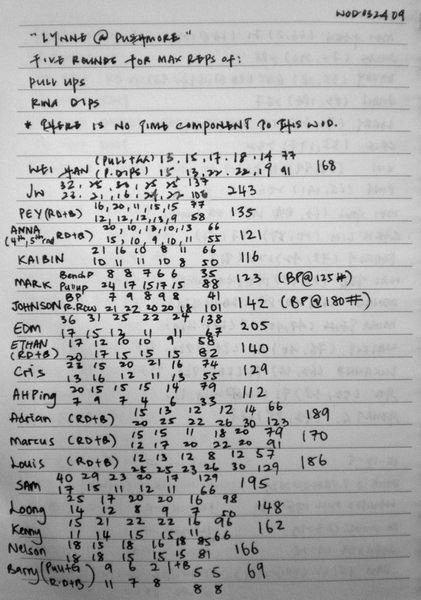 WOD 032409
"LYNNE @ PUSHMORE"
FIVE ROUNDS FOR MAX REPS OF:
PULL UPS
RING DIPS
* THERE IS NO TIME COMPONENT TO THIS WOD.
WEI HAN (PULL+GA) 15, 15, 17, 18, 14 77
(P. DIPS) 15, 13, 22, 22, 19 91 168
JW 32, 25, 25, 25, 25 137
23, 21, 16, 24, 22 106 243
PEY (RD+B) 16, 20, 11, 15, 15 77
12, 12, 12, 13, 9 58 135
ANNA (4th, 5th rnd RD+B) 20, 10, 13, 10, 13 66
15, 10, 9, 10, 11 55 121
KAI BIN 21 16 10 8 11 66
10 11 11 10 8 50 116
MARK Bench P 8 8 7 6 6 35
Pullup 24 17 15 17 15 88 123 (BP@125#)
JOHNSON BP 7 9 8 9 8 41
R.Row 21 22 20 20 18 101 142 (BP@180#)
EDM 36 31 25 22 24 138
17 15 12 11 11 67 205
ETHAN (RD+B) 17 12 10 10 9 58
20 17 15 15 15 82 140
Cris 23 15 20 21 16 74
13 16 12 11 13 55 129
AH Ping 20 15 15 15 14 79
7 9 7 4 6 33 112
Adrian (RD+B) 15 13 12 12 14 66
20 25 22 26 30 123 189
Marcus (RD+B) 15 15 11 18 20 79
12 17 20 22 20 91 170
Louis (RD+B) 12 13 12 8 12 57
25 25 23 26 30 129 186
SAM 40 29 23 20 17 129
17 15 11 12 11 66 195
Loong 25 17 20 20 16 98
14 12 8 9 7 50 148
Kenny 15 21 22 22 16 96
11 14 15 15 11 66 162
Nelson 18 15 18 16 18 85
18 18 15 15 15 81 166
Barry (Pull+G 9 6 2 1+B 5 5
RD+B) 11 7 8 8 8 69